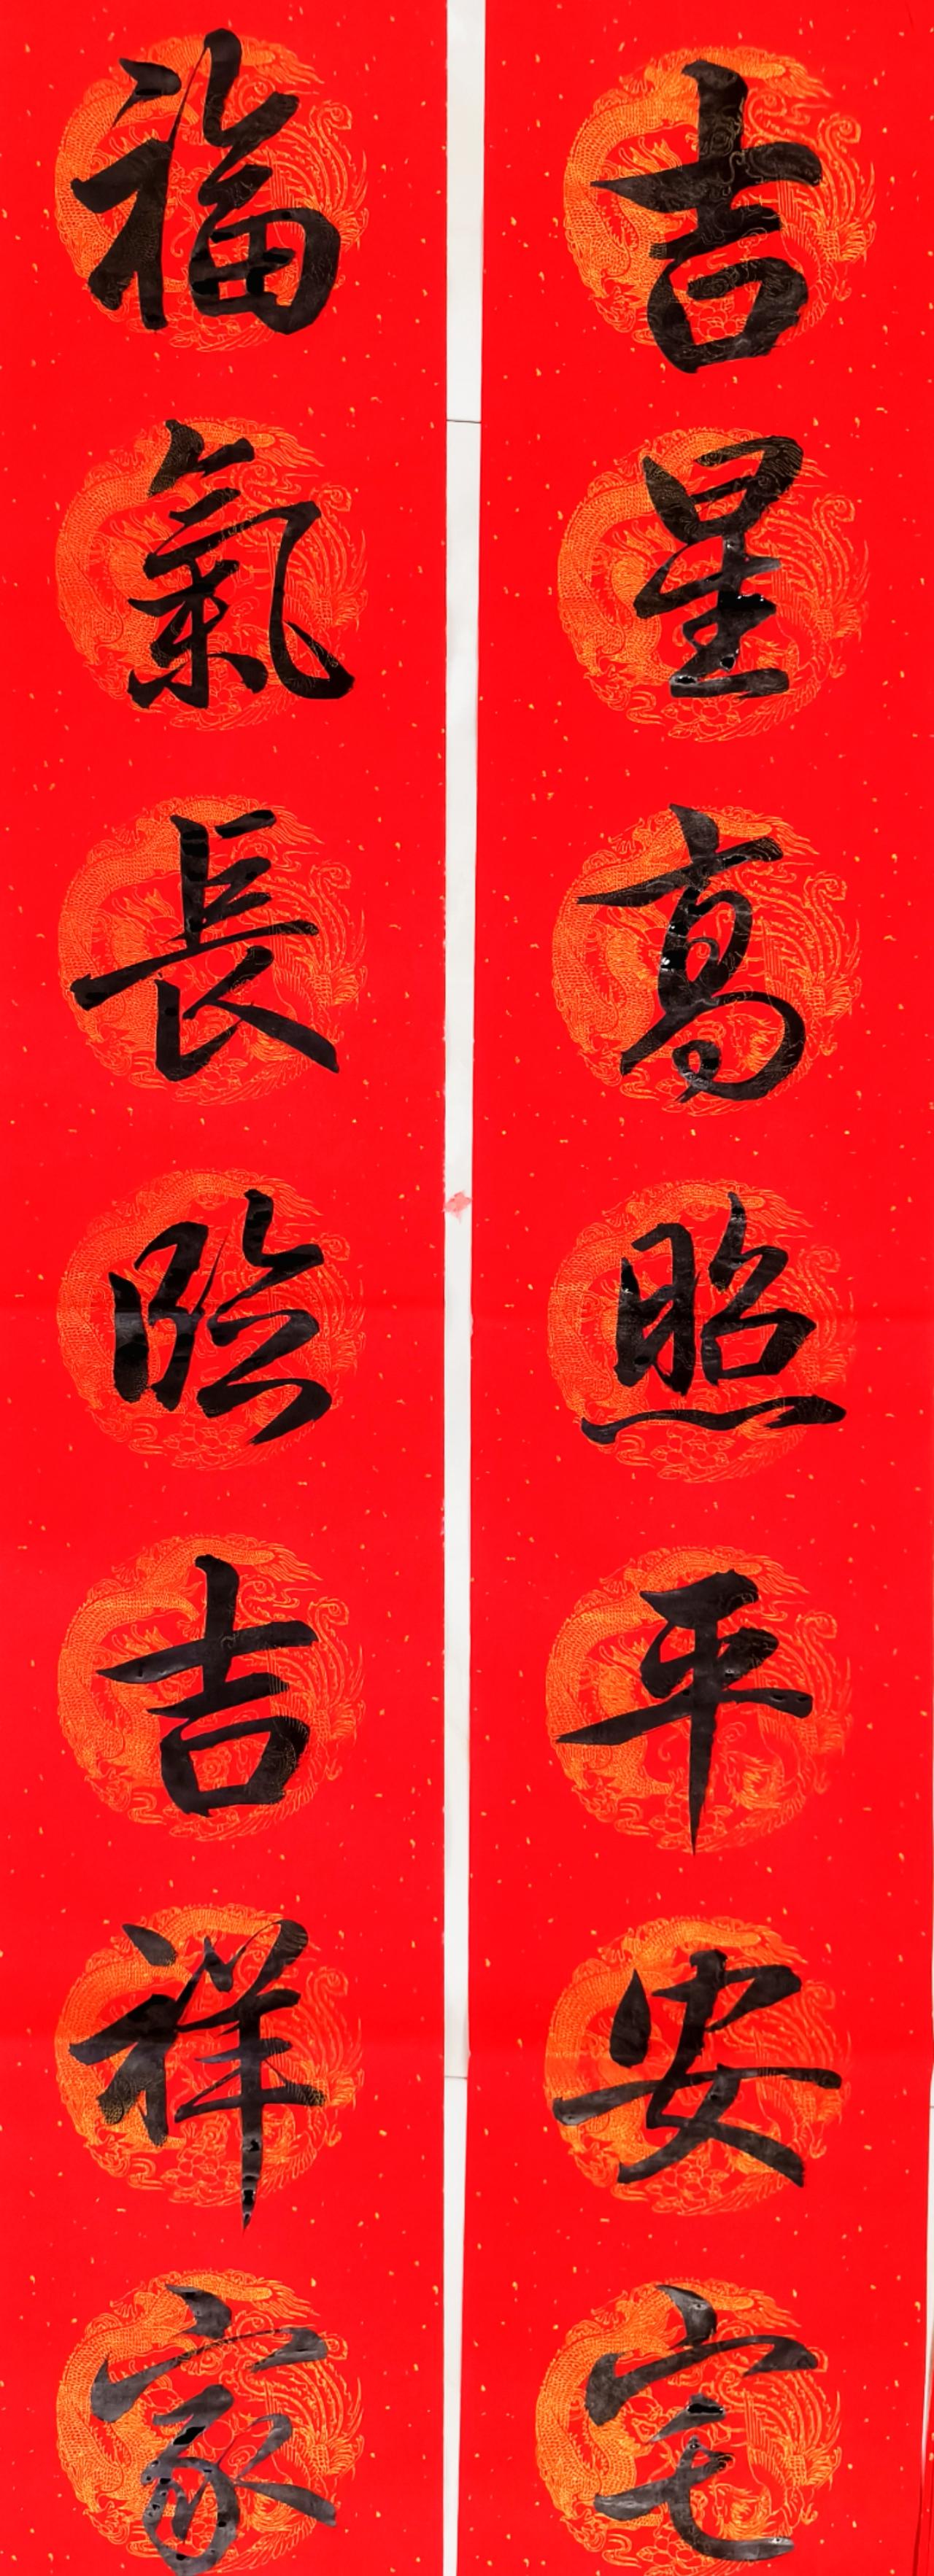 吉星高照平安宅
福氣長臨吉祥家